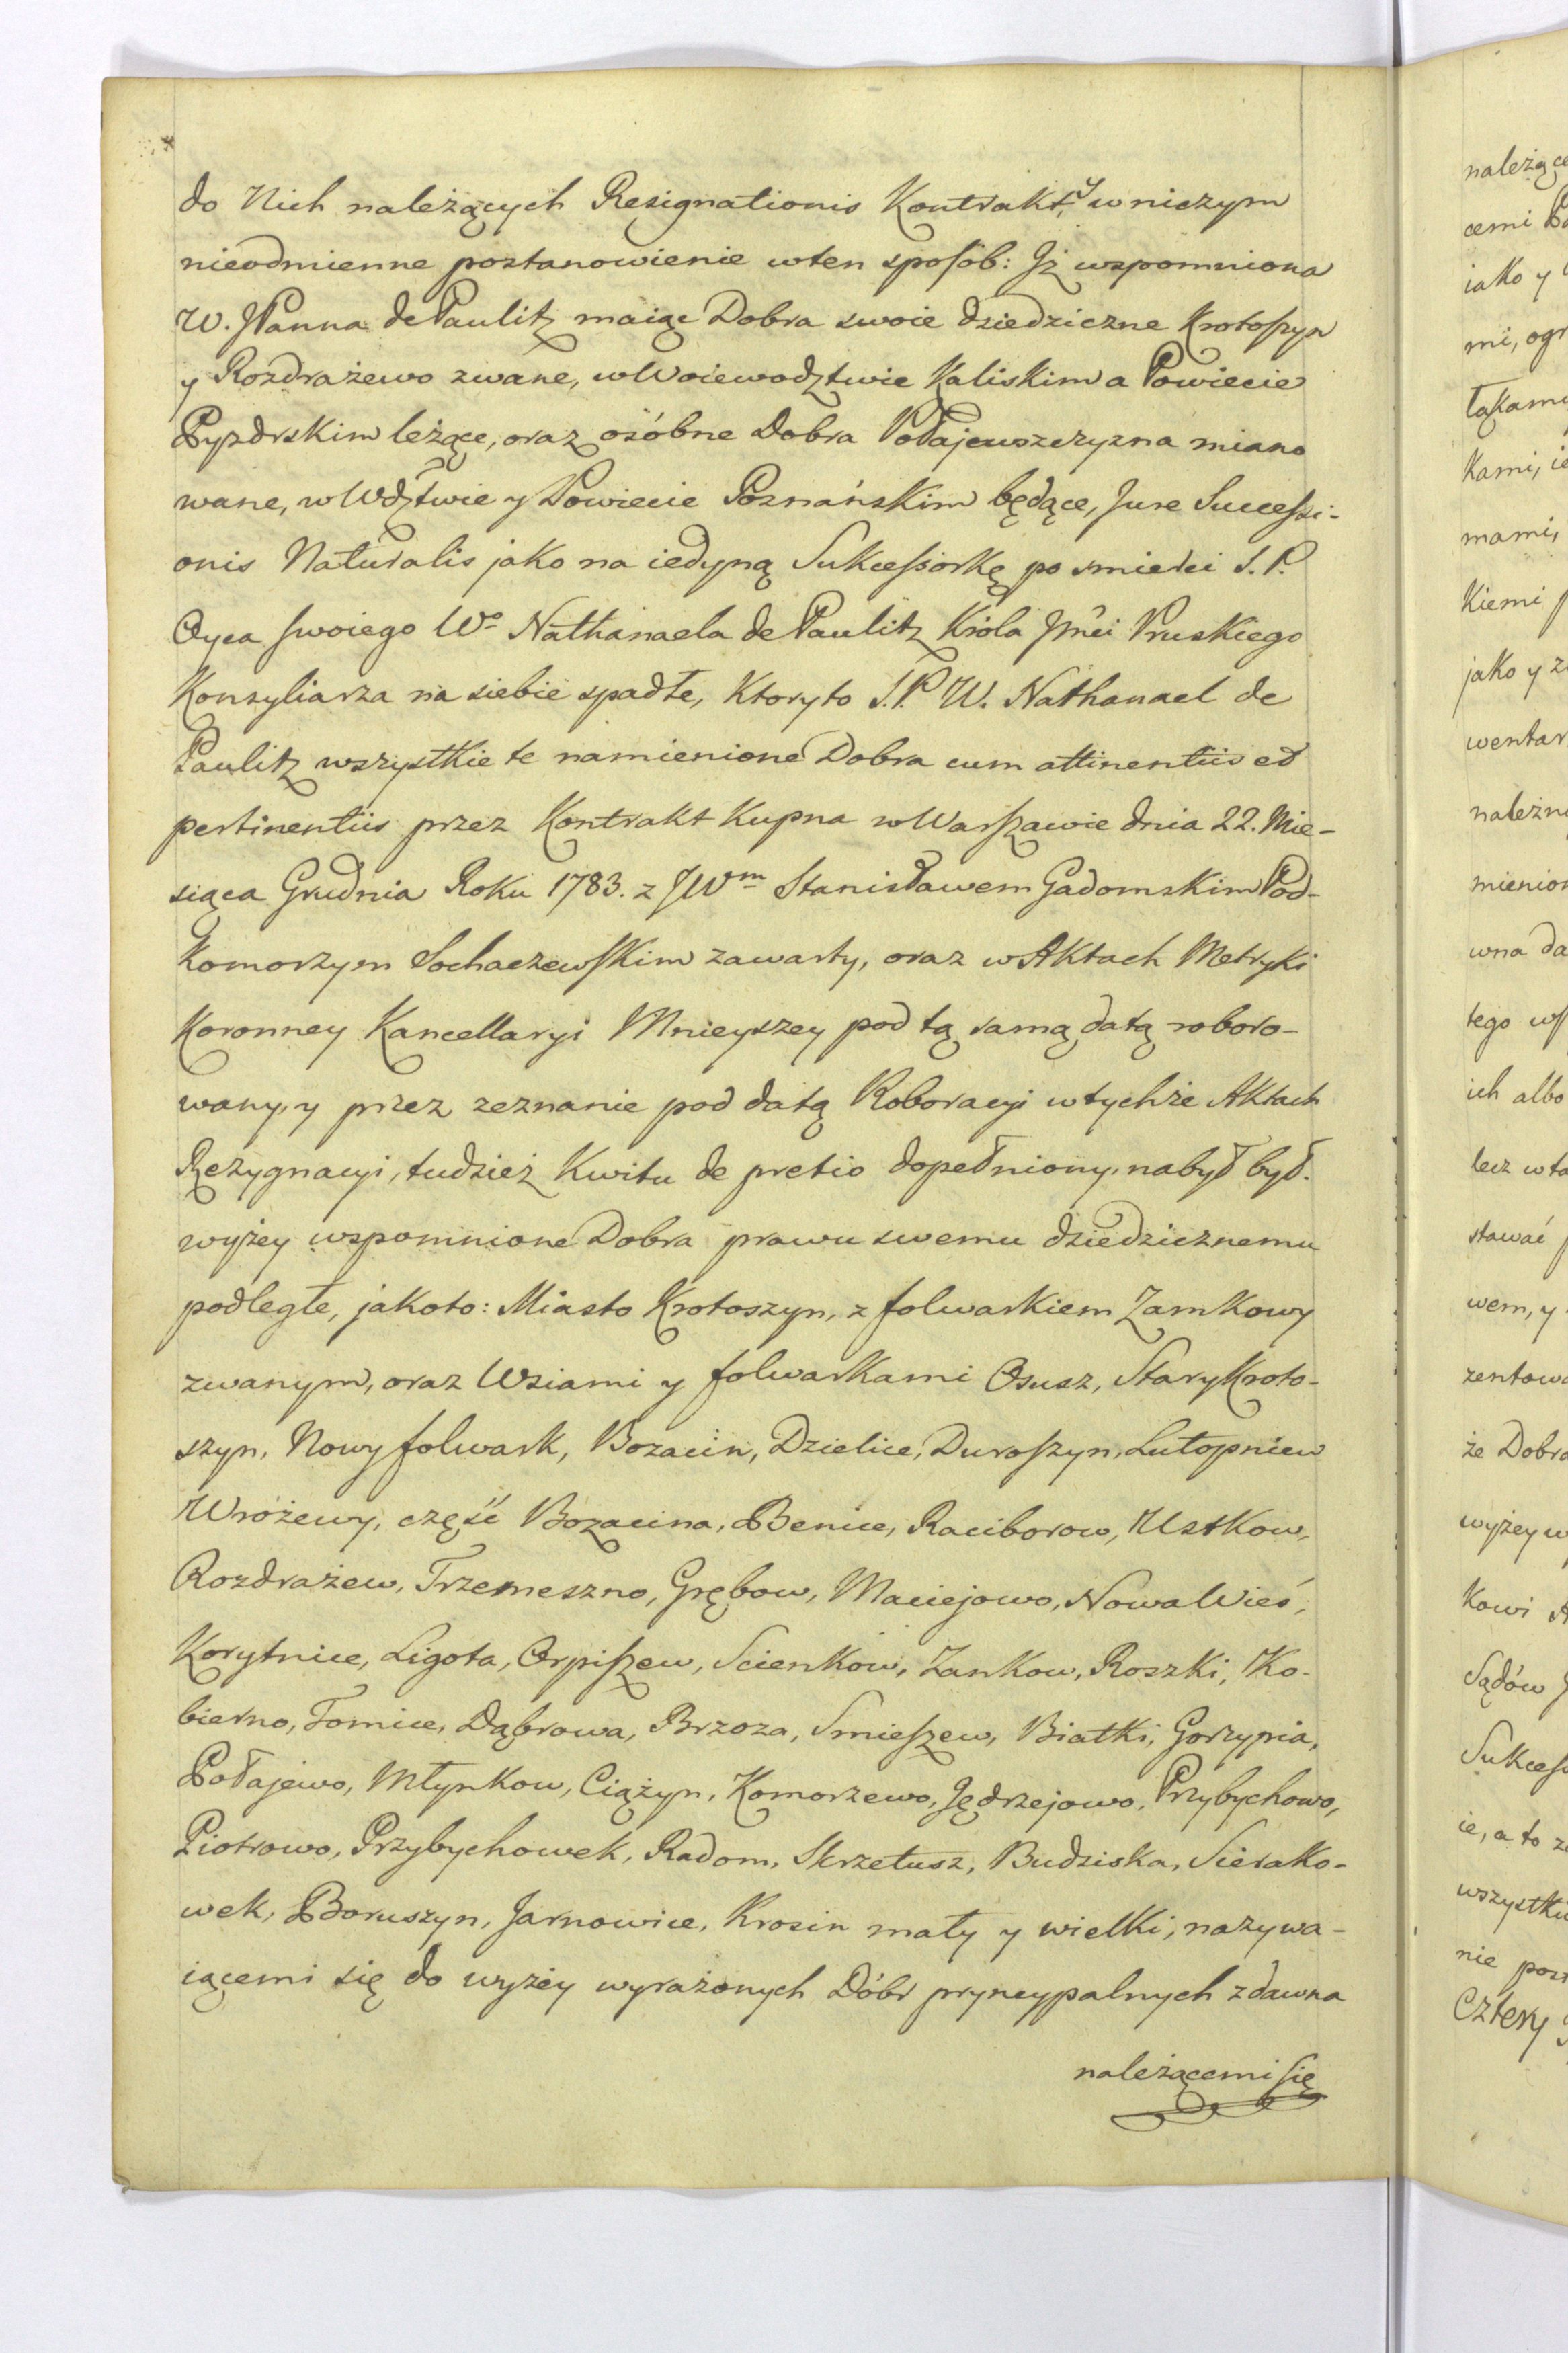 do Nich należących Resignationis Kontrakt, y w niczym
nieodmienne postanowienie w ten sposób: Jż wspomniona
W. JPanna de Paulitz maiąc Dobra swoie dziedziczne Krotoszyn
y Rozdrażewo zwane, w Woiewodztwie Kaliskim a Powiecie
Pyzdrskim leżące, oraz osóbne Dobra Połajewszczyzna miano
wane, w Wdztwie y Powiecie Poznańskim będące, Jure Successi-
onis Naturalis jako na iedyną Sukcessorkę po smierci S. P.
Oyca swoiego Wo Nathanaela de Paulitz Króla Jmci Pruskiego
Konsyliarza na siebie spadłe, Ktoryto S. P. W. Nathanael de
Paulitz wszystkie te namienione Dobra cum attinentiis ed
pertinentiis przez Kontrakt Kupna w Warszawie dnia 22. Mie-
siąca Grudnia Roku 1783. z JWm Stanisławem Gadomskim Pod-
komorzym Sochaczewskim zawarty, oraz w Aktach Metryki
Koronney Kancellaryi Mnieyszey pod tą samą datą roboro-
wany, y przez zeznanie pod datą Roboracyi w tychże Aktach
Rezygnacyi, tudzież Kwitu de pretio dopełniony, nabył był.
wyżey wspomnione Dobra prawu swemu dziedzicznemu
podległe, jakoto: Miasto Krotoszyn, z folwarkiem Zamkowy
zwanym, oraz Wsiami y folwarkami Osusz, Stary Kroto-
szyn, Nowy folwark, Bozacin, Dzielice, Duroszyn, Lutopniew
Wrożewy, część Bozacina, Benice, Raciborow, Ustkow,
Rozdrażew, Trzemeszno, Grębow, Maciejowo, Nowa Wieś,
Korytnice, Ligota, Orpiszew, Scienkow, Zankow, Roszki, Ko-
bierno, Tomice, Dąbrowa, Brzoza, Smieszew, Białki, Gorzypia,
Połajewo, Młynkow, Ciążyn, Komorzewo, Jędrzejowo, Przybychowo,
Piotrowo, Przybychowek, Radom, Skrzetusz, Budziska, Sierako-
wek, Boruszyn, Jarnowice, Krosin mały y wielki, nazywa-
iącemi się do wyżey wyrażonych Dóbr pryncypalnych zdawna
należącemi się
należące
cemi
iako y
mi, ogr
łąkami
kami, ie
mami,
kiemi
jako y
wentar
należn
mienion
wna da
tego
ich albo
lecz w to
stawać
wem, y
zentowa
że Dobra
wyżey w
kowi
Sądów
Sukcess
ie, a to
wszystki
nie
Cztery